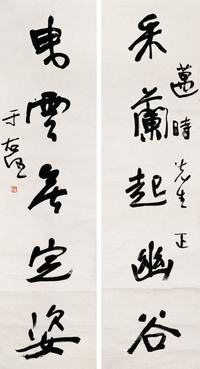 采蘭起幽谷
邁時先生 正
東雲無定姿
于右任